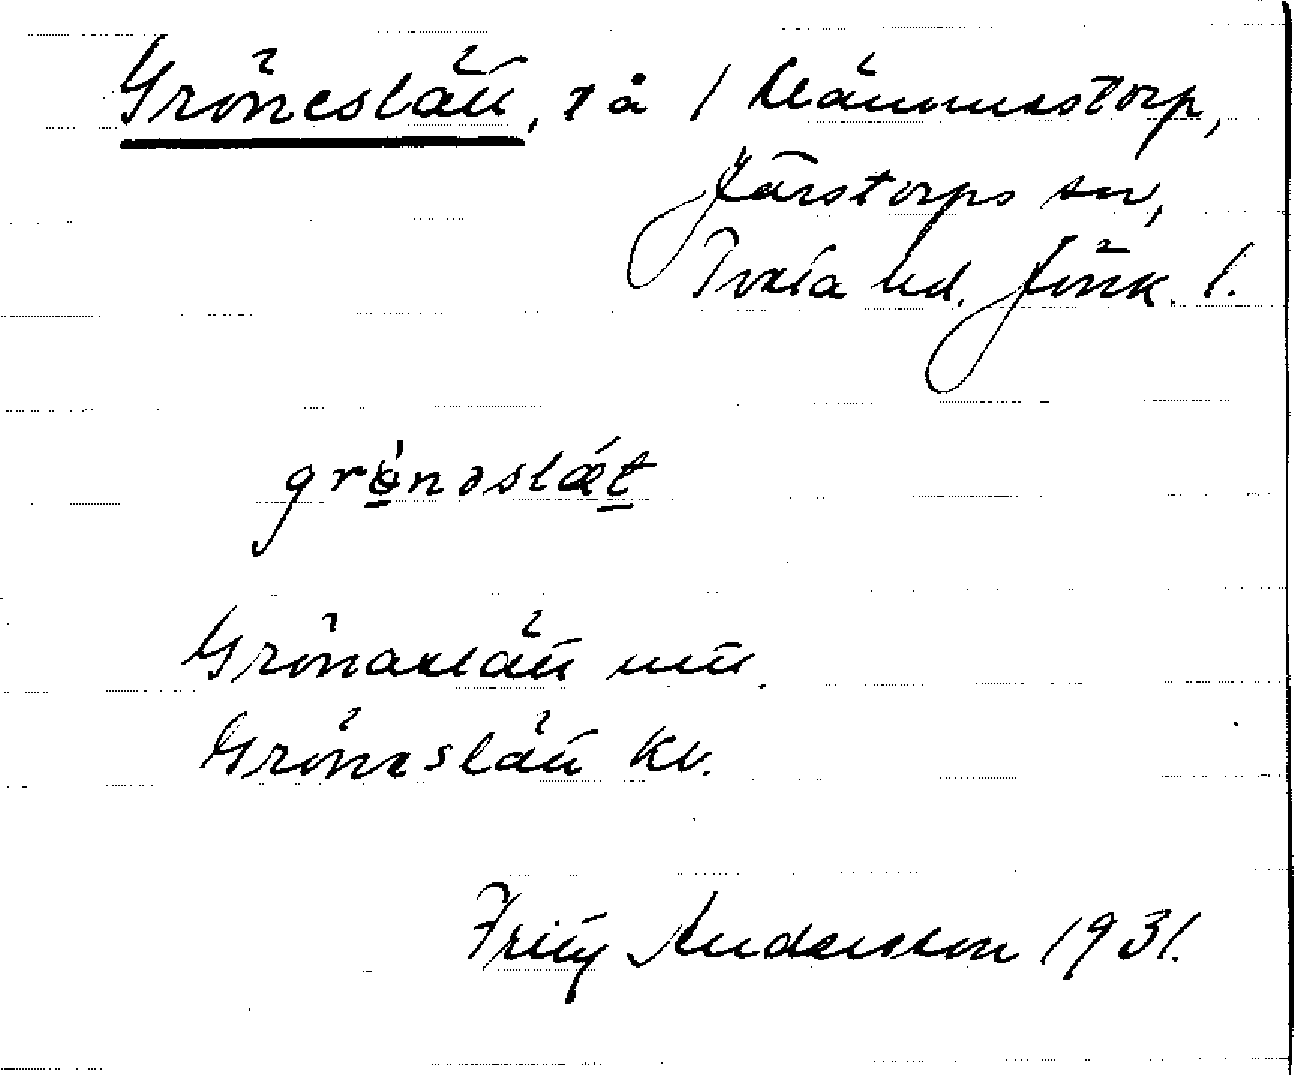 Gröneslätt, Klämmestorp,
Järstorps sn,
Tveta hd. Jönk. l.
grǿnəslǽt
Grönaslätt
Gröneslätt kv.
Fritz Andersson 1931.